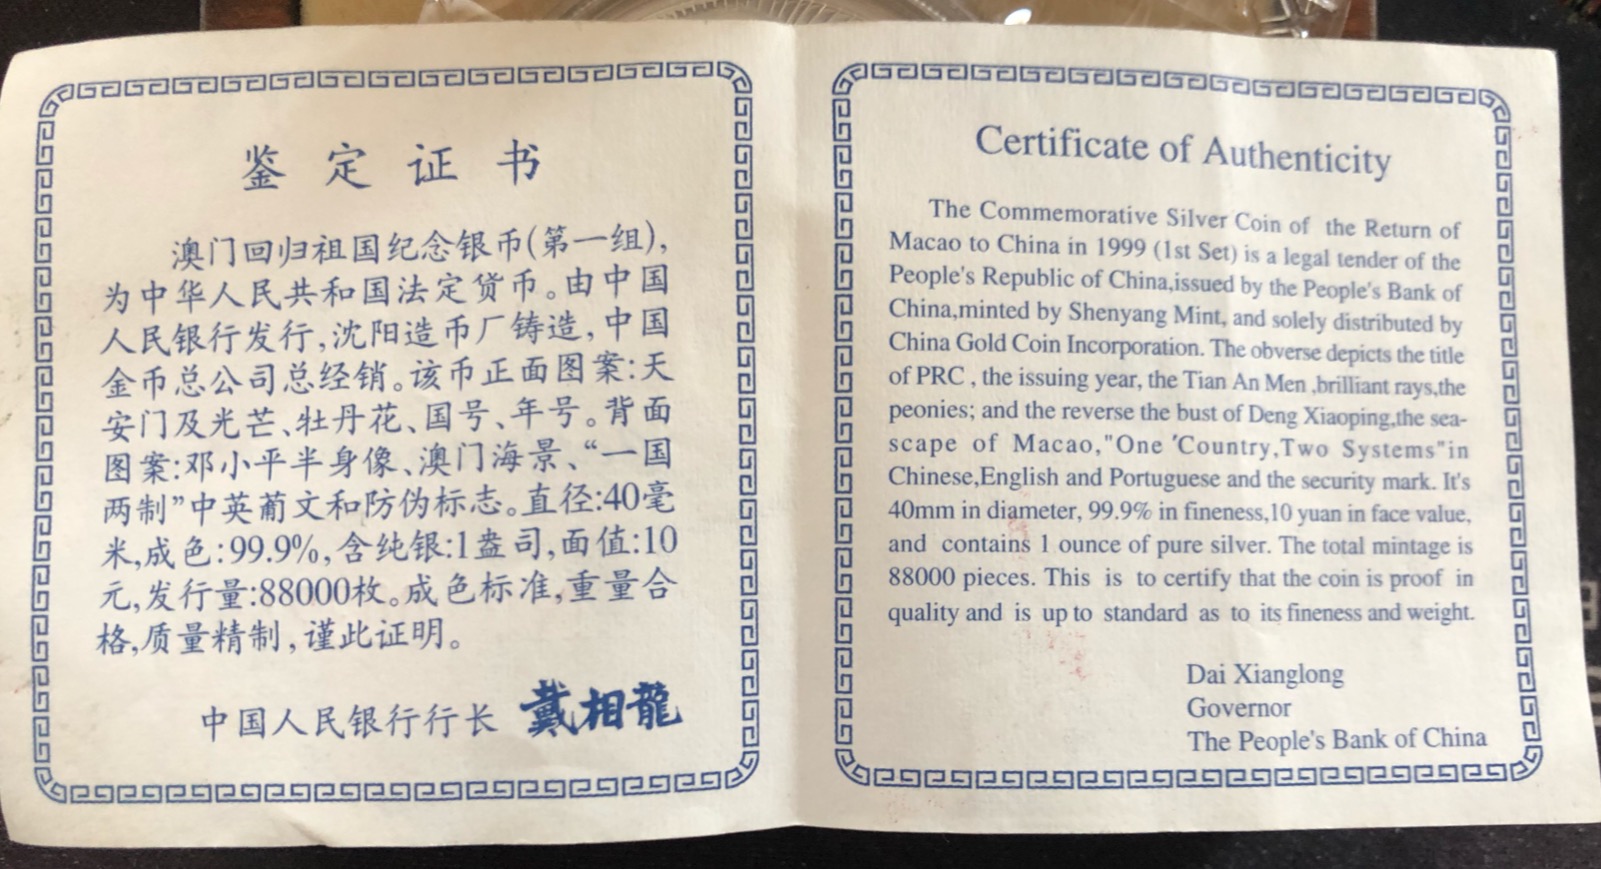 鉴定证书
澳门回归祖国纪念银币(第一组),
为中华人民共和国法定货币。由中国
人民银行发行,沈阳造币厂铸造,中国
金币总公司总经销。该币正面图案:天
安门及光芒、牡丹花、国号、年号。背面
图案:邓小平半身像、澳门海景、“一国
两制”中英葡文和防伪标志。直径:40毫
米,成色:99.9%,含纯银:1盎司,面值:10
元,发行量:88000枚。成色标准,重量合
格,质量精制,谨此证明。
中国人民银行行长 戴相龍
Certificate of Authenticity
The Commemorative Silver Coin of the Return of
Macao to China in 1999 (1st Set) is a legal tender of the
People's Republic of China,issued by the People's Bank of
China,minted by Shenyang Mint, and solely distributed by
China Gold Coin Incorporation. The obverse depicts the title
of PRC , the issuing year, the Tian An Men ,brilliant rays,the
peonies; and the reverse the bust of Deng Xiaoping,the sea-
scape of Macao,"One 'Country,Two Systems"in
Chinese,English and Portuguese and the security mark. It's
40mm in diameter, 99.9% in fineness,10 yuan in face value,
and contains 1 ounce of pure silver. The total mintage is
88000 pieces. This is to certify that the coin is proof in
quality and is up to standard as to its fineness and weight.
Dai Xianglong
Governor
The People's Bank of China